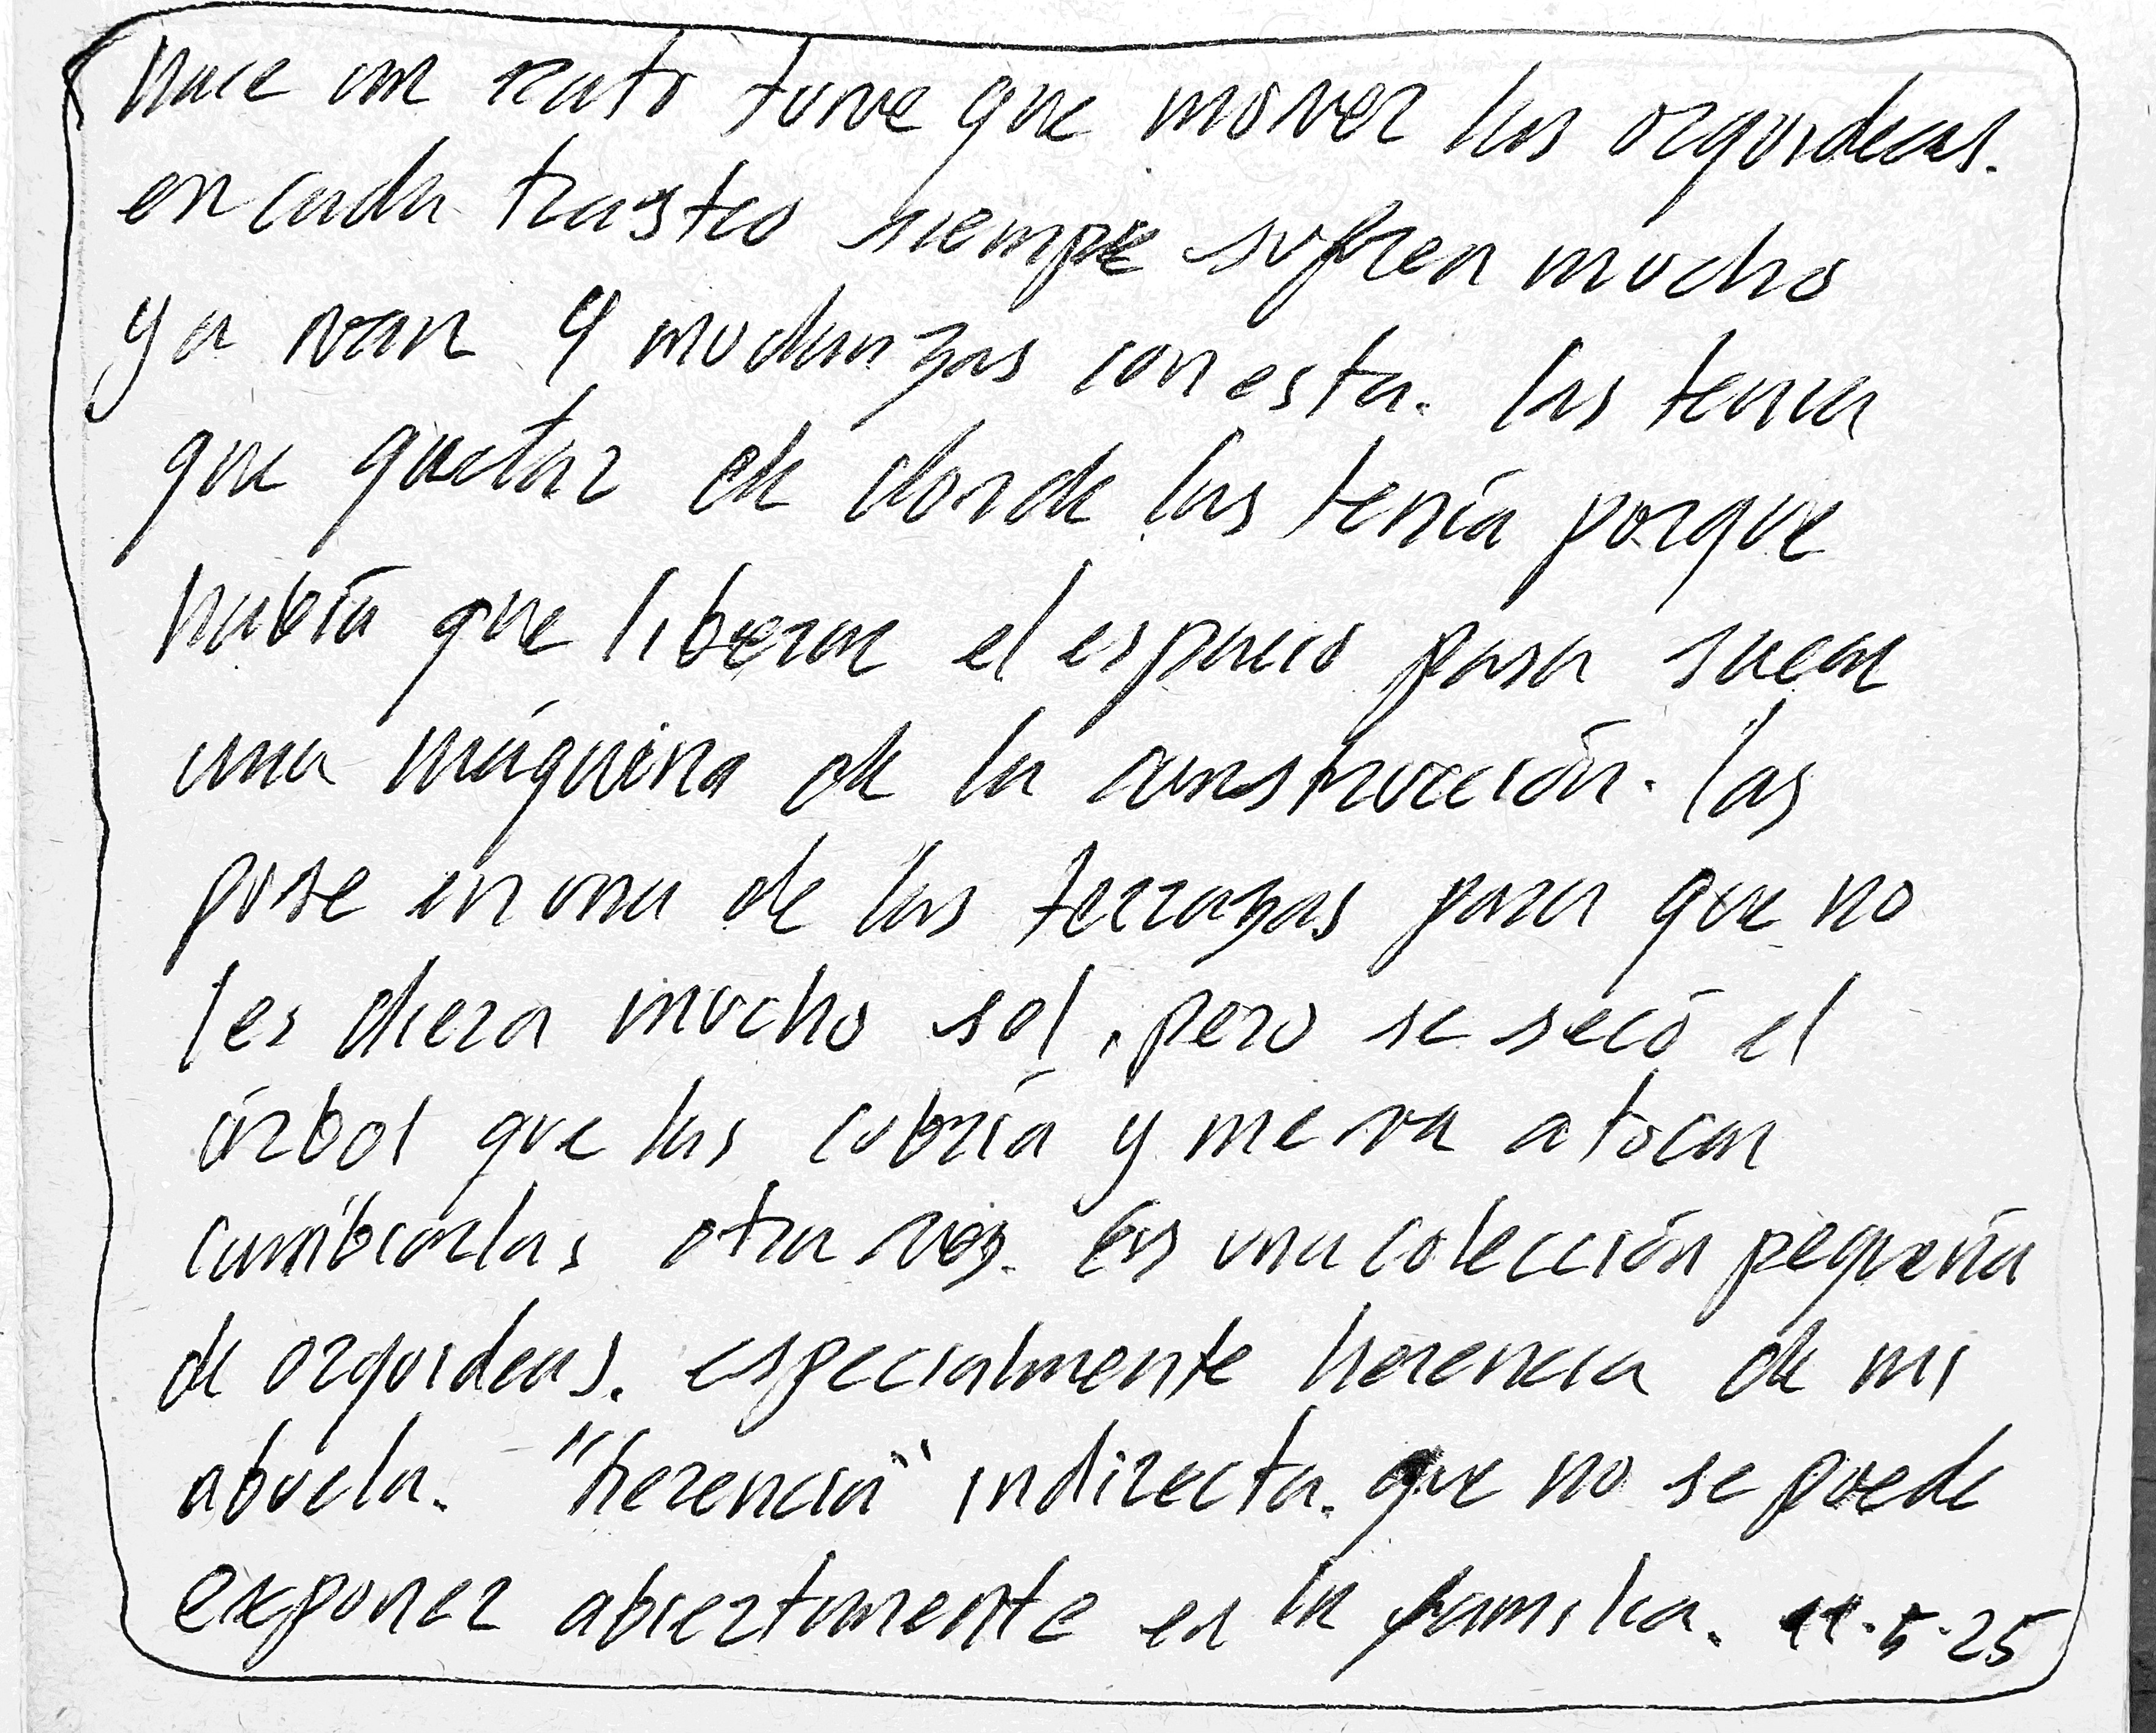 hace un rato tuve que mover las orquideas.
en cada trasteo siempre sufren mucho
ya van 4 mudanzas con esta. las tenia
que quitar de donde las tenía porque
había que liberar el espacio para sacar
una máquina de la construcción. las
puse en una de las terrazas para que no
les diera mucho sol, pero se secó el
árbol que las cubría y me va a tocar
cambiarlas otra vez. Es una colección pequeña
de orquideas. especialmente herencia de mi
abuela. "herencia" indirecta. que no se puede
exponer abiertamente en la familia. 11.5.25